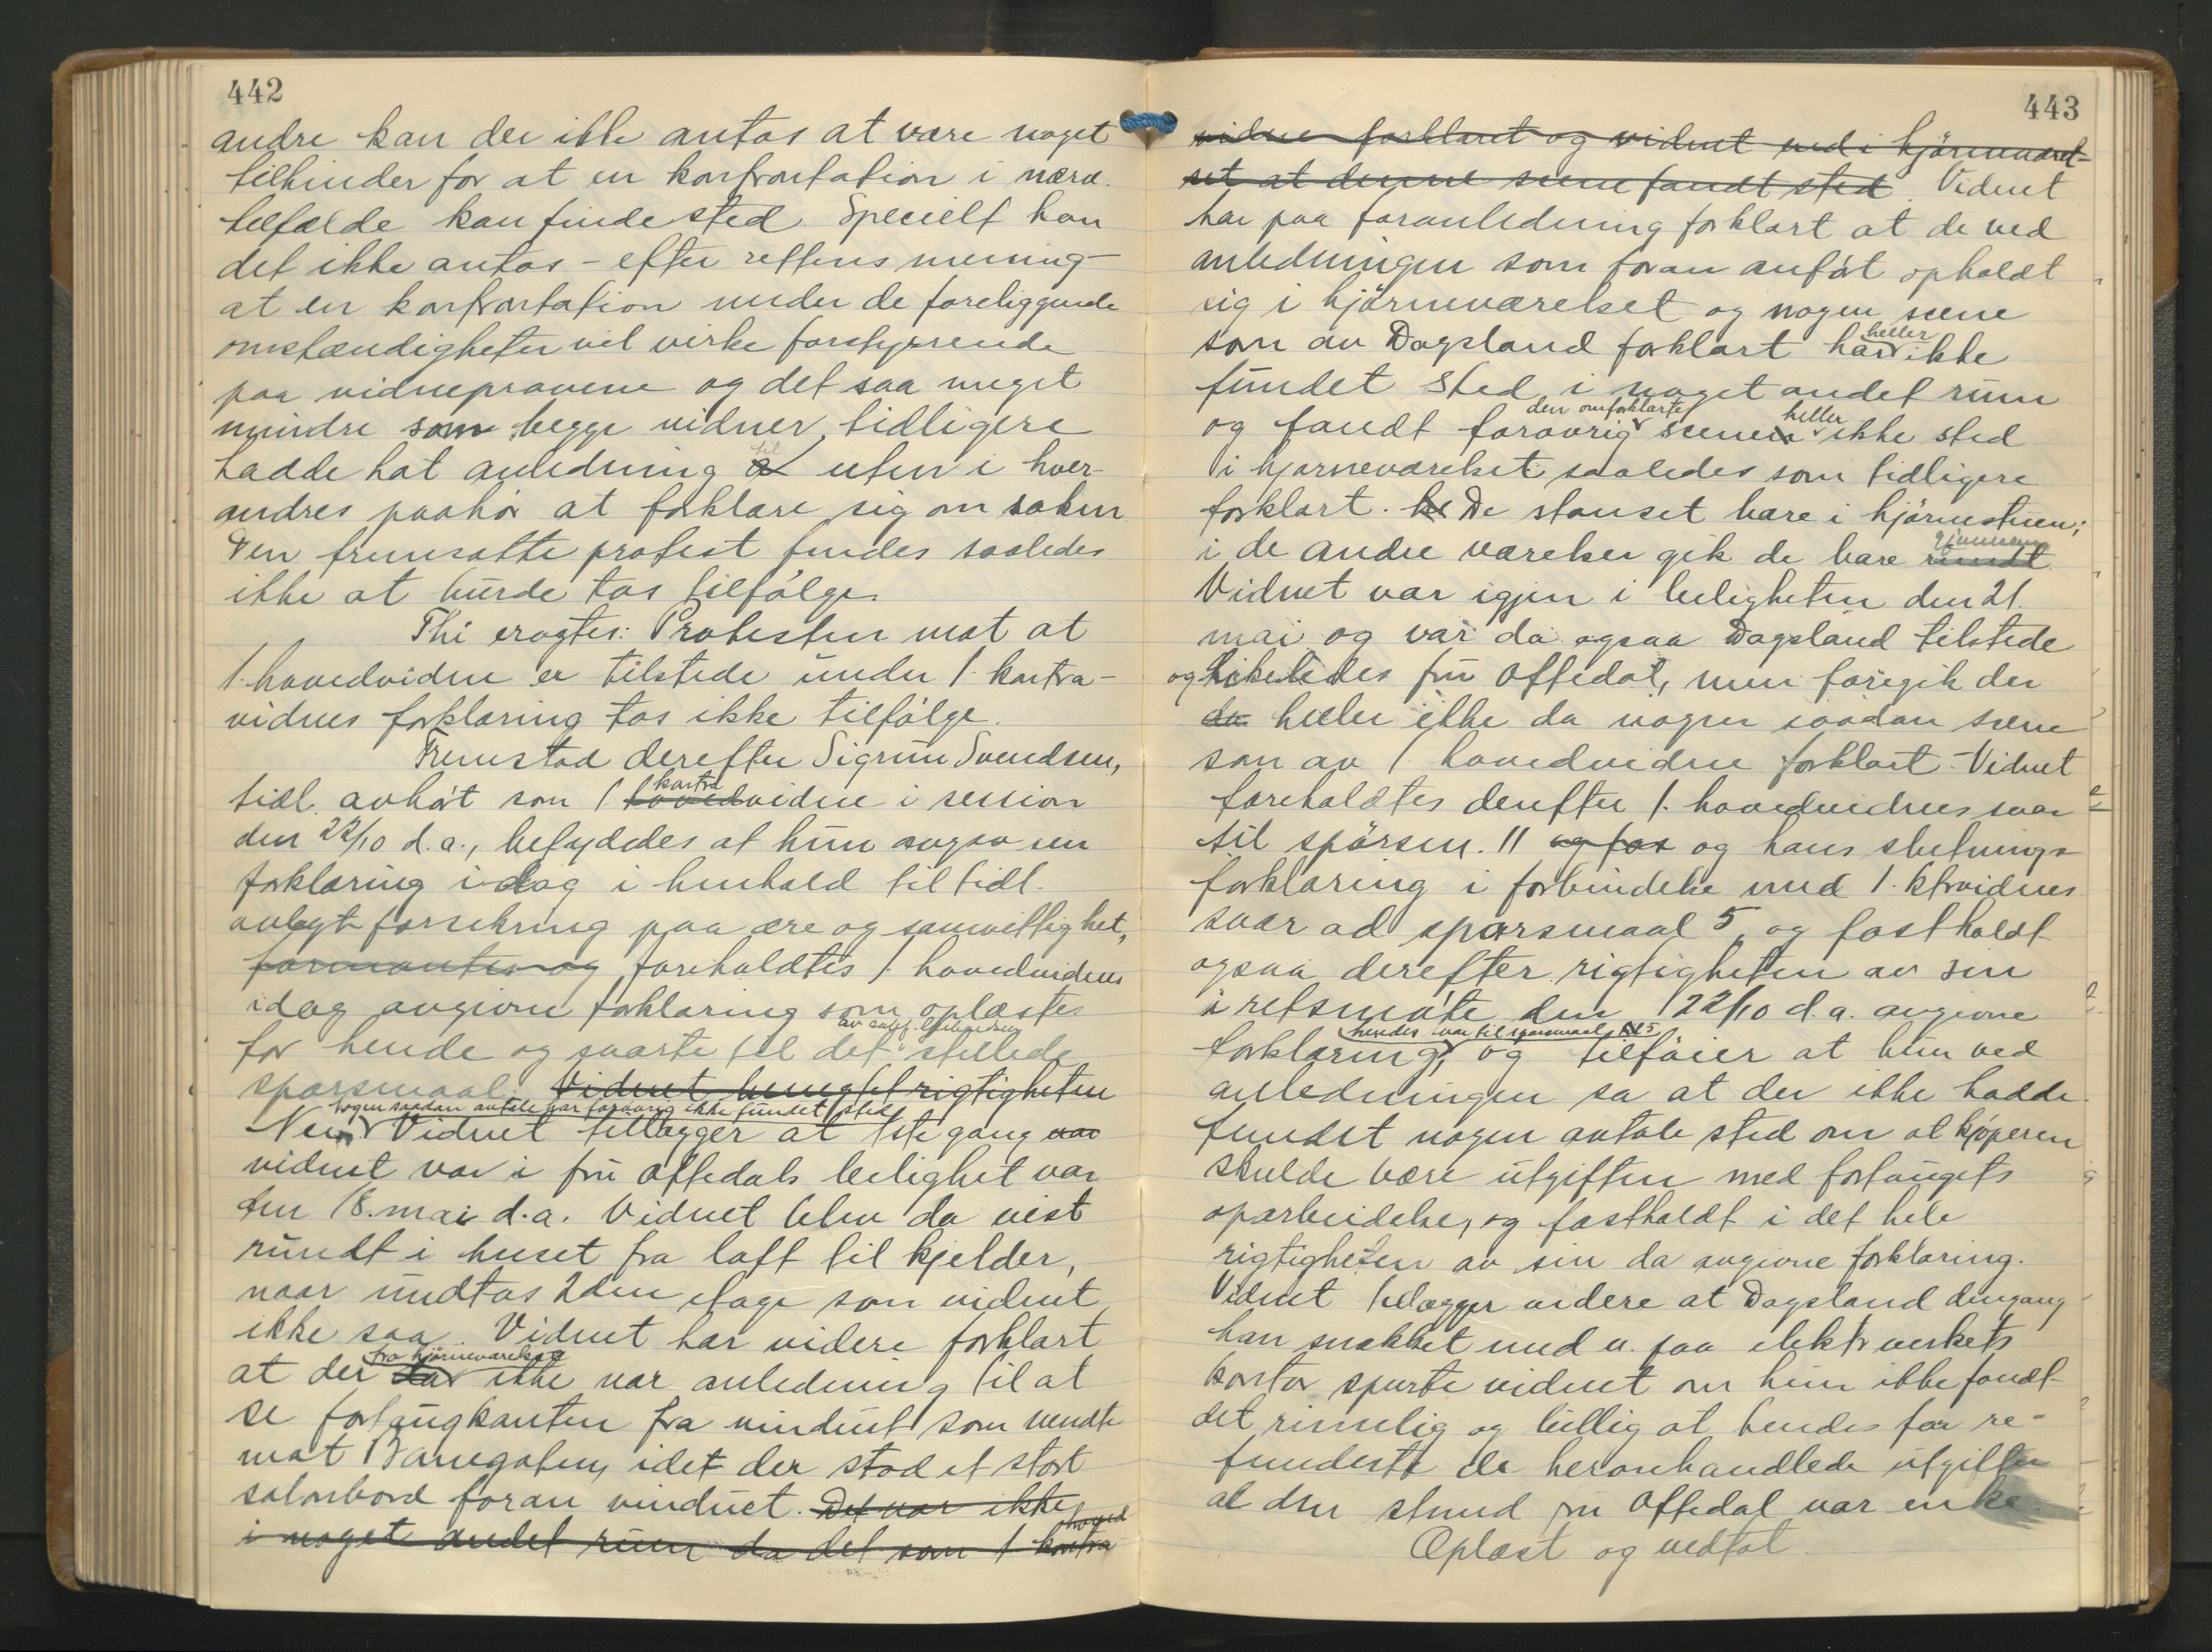 442
andre kan der ikke antas at være noget
tilhinder for at en konfrontation i nærv.
tilfælde kan finde sted. Specielt kan
det ikke antas - efter rettens mening -
at en konfrontation under de foreliggende
omstændigheter vil virke forstyrrende
paa vidneprovene og det saa meget
mindre som begge vidner tidligere
hadde hat anledning til uten i hver-
andres paahør at forklare sig om saken.
Den fremsatte protest findes saaledes
ikke at burde tas tilfølge.
Thi eragtes: Protesten mot at
1. hovedvidne er tilstede under 1. kontra-
vidnes forklaring tas ikke tilfølge.
Fremstod derefter Sigrun Svendsen,
kontra
tidl. avhørt som 1 hovedvidne i session
den 22/10 d.a., betydedes at hun avgav sin
forklaring idag i henhold til tidl.
avlagt forsikring paa ære og samvittighet,
formantes og foreholdtes 1. hovedvidnes
idag avgivne forklaring som oplæstes
for hende og svarte til det stillede
spørsmaal: Vidnet benegtet rigtigheten
nogen saadan avtale har forøvrig ikke fundet sted
Nei. Vidnet tillægger at 1ste gang var
vidnet var i fru Offedals leilighet var
den 18. mai d.a. Vidnet blev da vist
rundt i huset fra loft til kjelder,
naar undtas 2den etage som vidnet
ikke saa. Vidnet har videre forklart
fra hjørneværelset
at der da ikke var anledning til at
se fortaugkanten fra vinduet som vendte
mot Banegaten, idet der stod et stort
salonbord foran vinduet. Det var ikke
hoved
i noget andet rum da det som 1 kontra
443
vidne forklaret og vidnet ved i hjørneværel-
set at denne scene fandt sted. Vidnet
har paa foranledning forklart at de ved
anledningen som foran anført opholdt
sig i hjørneværelset og nogen scene
heller
som av Dagsland forklart har ikke
fundet sted i noget andet rum
den omforklarte heller
og fandt forøvrig scenen ikke sted
i hjørneværelset saaledes som tidligere
forklart. De stanset bare i hjørnestuen;
gjennem
i de andre værelser gik de bare rundt.
Vidnet var igjen i leiligheten den 21.
mai og var da ogsaa Dagsland tilstede
og likeledes fru Offedal, men foregik der
da heller ikke da nogen saadan scene
som av 1 hovedvidne forklart. Vidnet
foreholdtes derefter 1. hovedvidnes svar
til spørsm. 11 og for og hans slutnings-
forklaring i forbindelse med 1. ktrvidnes
svar ad spørsmaal 5, og fastholdt
ogsaa derefter rigtigheten av sin
i retsmøte den 22/10 d.a. avgivne
hendes svar til spørsmaal 5
forklaring, og tilføier at hun ved
anledningen sa at der ikke hadde
fundet nogen avtale sted om at kjøperen
skulde bære utgiften med fortaugets
oparbeidelse, og fastholdt i det hele
rigtigheten av sin da avgivne forklaring.
Vidnet tillægger videre at Dagsland dengang
han snakket med v. paa elektr. verkets
kontor spurte vidnet om hun ikke fandt
det rimelig og billig at hendes far re-
funderte de heromhandlede utgifter
al den stund fru Offedal var enke.
Oplæst og vedtat.